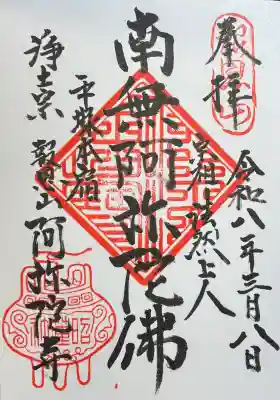 奉拝
令和八年三月八日
宗祖 法然上人
南無阿弥陀佛
浄土宗
阿弥陀寺